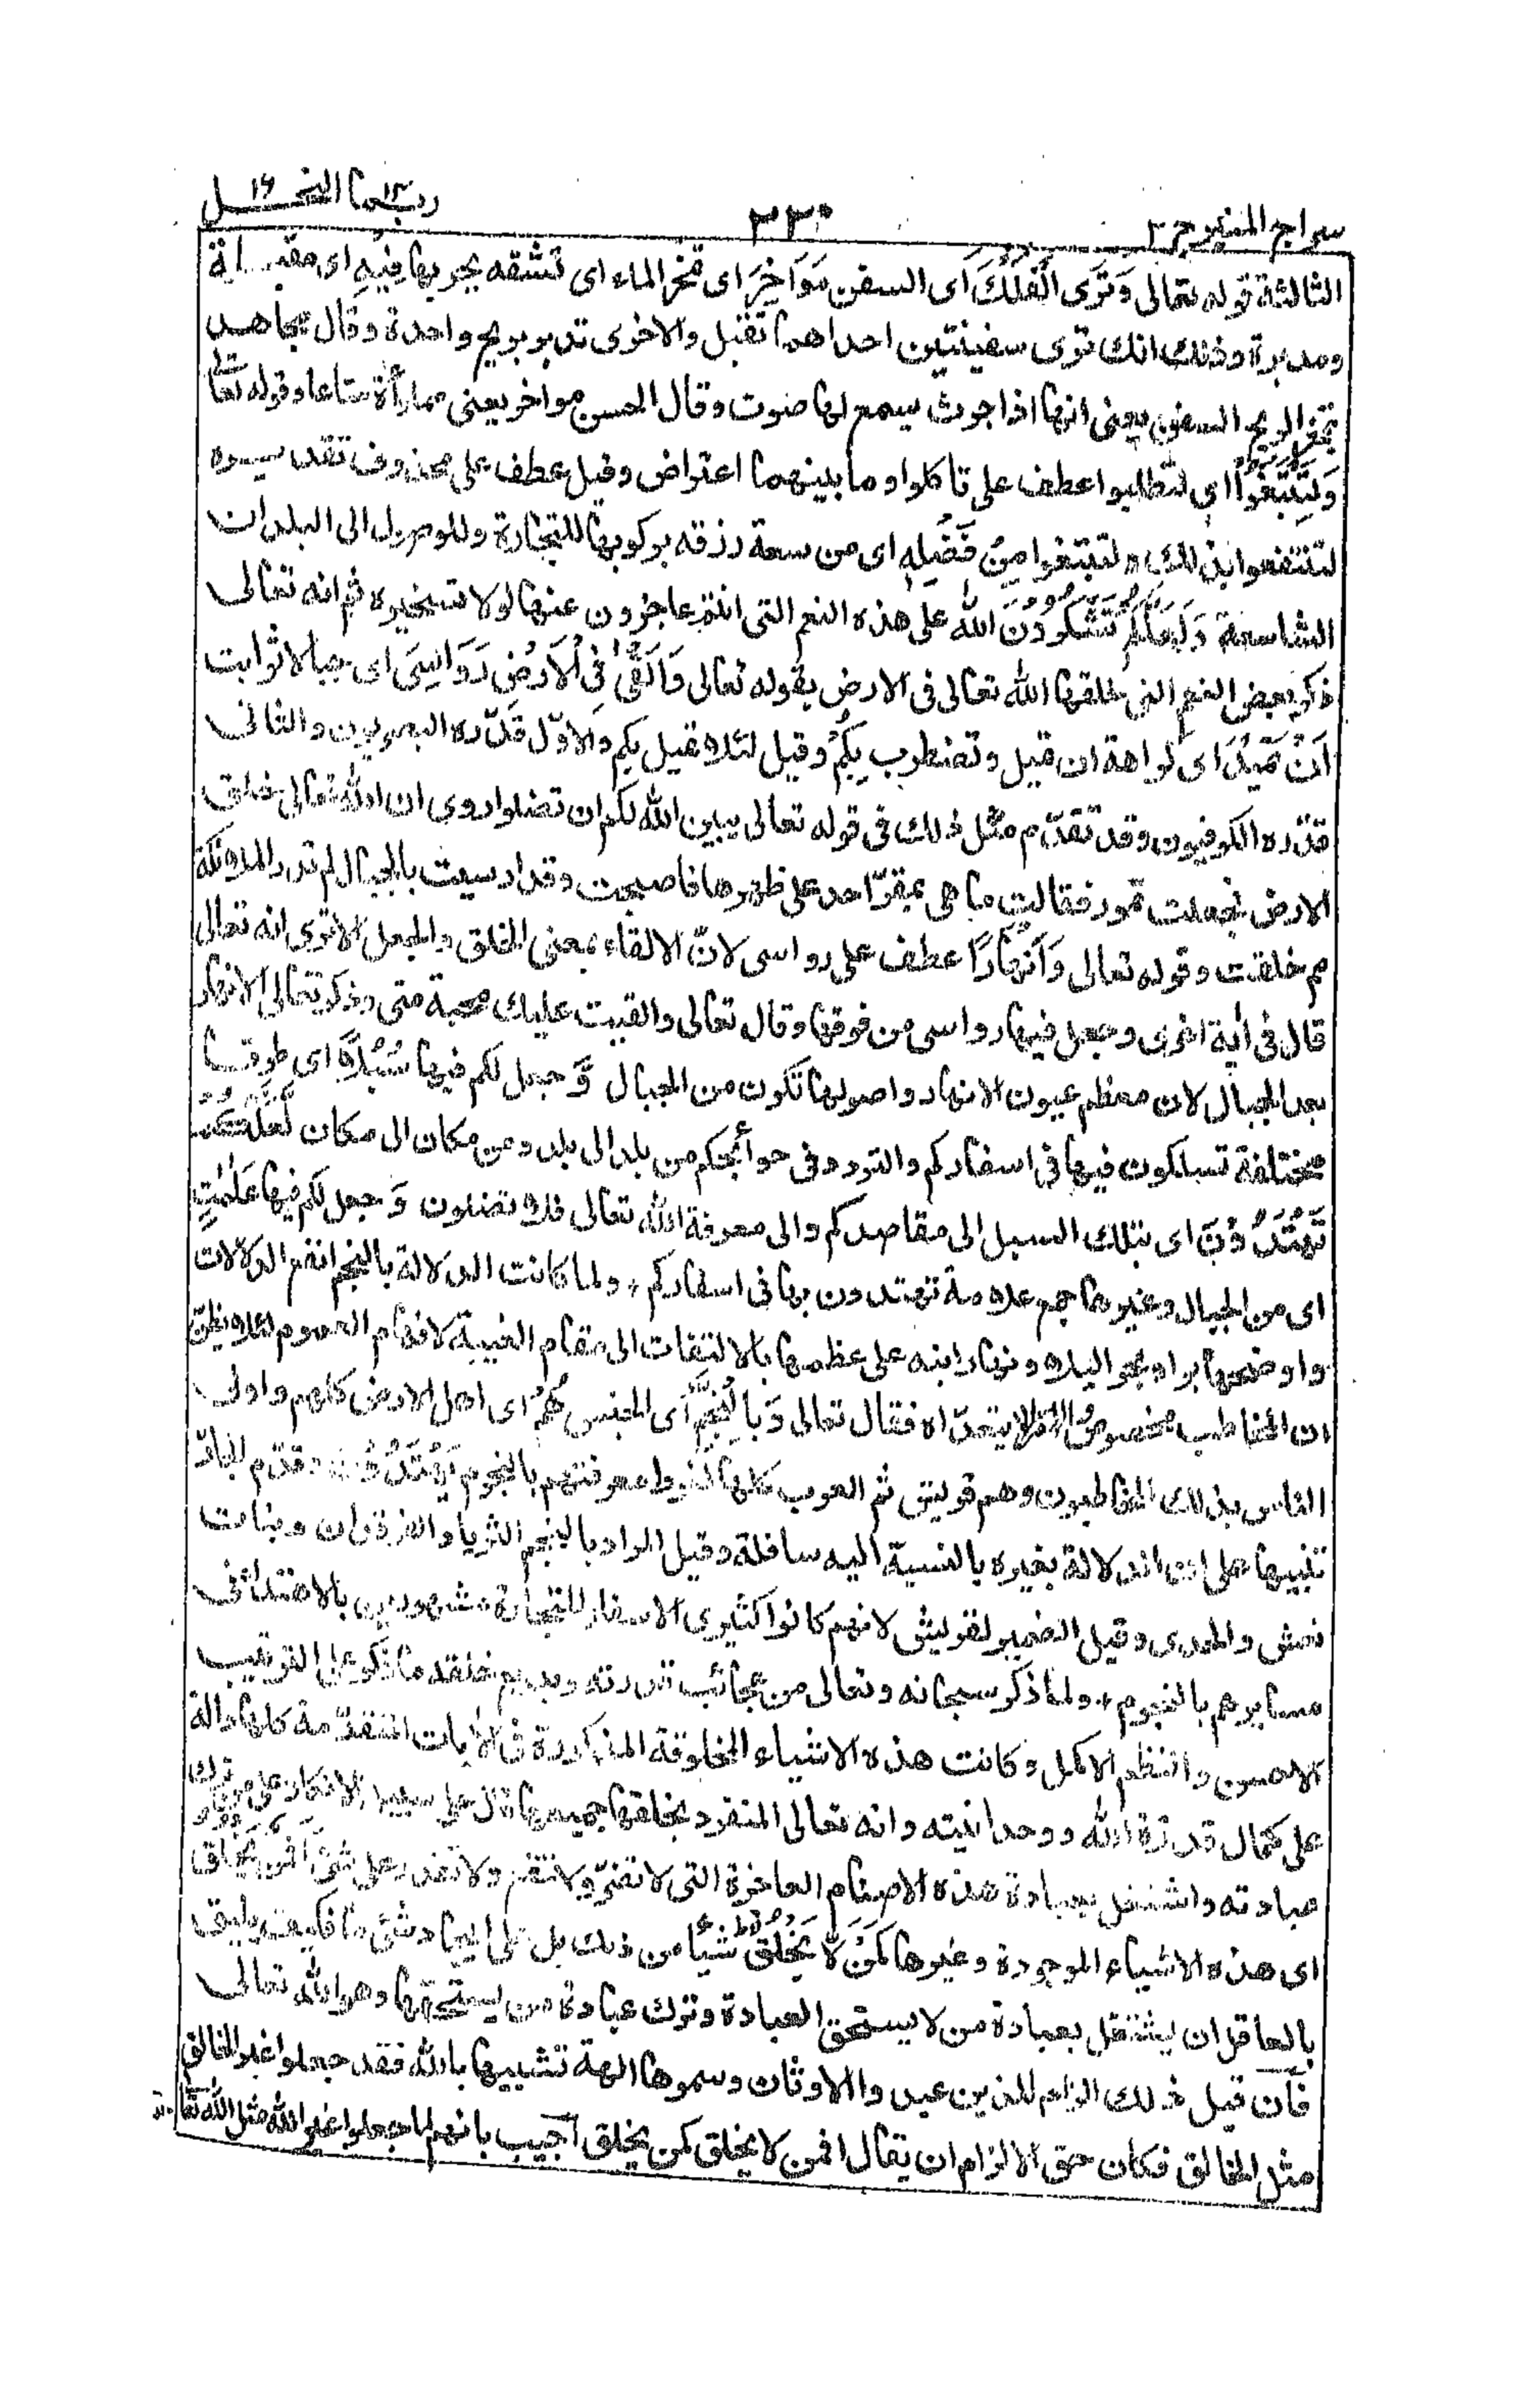 سراج المنير ج ٢
٣٣٠
ربما ١٤ النحل ١٦
الثالثة قوله تعالى وَتَرَى الْفُلْكَ اى السفن مَوَاخِرَ اى تمخر الماء اى تشقه بجريها فِيهِ اى مقبلة
ومدبرة وذلك انك ترى سفينتين احداهما تقبل والاخرى تدبر بريح واحدة وقال مجاهد
تمخر الريح السفن يعنى انها اذا جرت يسمع لها صوت وقال الحسن مواخر يعنى مملوأة متاعا وقوله تعالى
وَلِتَبْتَغُوا اى لتطلبوا عطف على تاكلوا وما بينهما اعتراض وقيل عطف على محذوف تقديره
لتنتفعوا بذلك ولتبتغوا مِنْ فَضْلِهِ اى من سعة رزقه بركوبها للتجارة وللوصول الى البلدان
الشاسعة وَلَعَلَّكُمْ تَشْكُرُونَ الله على هذه النعم التى انتم عاجزون عنها لولا تسخيره ثم انه تعالى
ذكر بعض النعم التى خلقها الله تعالى فى الارض بقوله تعالى وَاَلْقٰى فِى الْاَرْضِ رَوَاسِىَ اى جبالا ثوابت
اَنْ تَمِيْدَ اى كراهة ان تميل وتضطرب بِكُمْ وقيل لئلا تميل بكم والاوّل قدّره البصريون والثانى
قدّره الكوفيون وقد تقدّم مثل ذلك فى قوله تعالى يبين الله لكم ان تضلوا روى ان الله تعالى خلق
الارض فجعلت تمور فقالت ما هى بمقرّ احد على ظهرها فاصبحت وقد ارسيت بالجبال لم تدر الملائكة
مم خلقت وقوله تعالى وَاَنْهَارًا عطف على رواسى لانّ الالقاء بمعنى الخلق والجعل الا ترى انه تعالى
قال فى اية اخرى وجعل فيها رواسى من فوقها وقال تعالى والقيت عليك محبة منى وذكر تعالى الانهار
بعد الجبال لان معظم عيون الانهار واصولها تكون من الجبال وَّ جعل لكم فيها سُبُلًا اى طرقا
مختلفة تسلكون فيها فى اسفاركم والتردد فى حوائجكم من بلد الى بلد ومن مكان الى مكان لَّعَلَّكُمْ
تَهْتَدُوْنَ اى بتلك السبل الى مقاصدكم والى معرفة الله تعالى فلا تضلون وَ جعل لكم فيها عَلٰمٰتٍ
اى من الجبال وغيرها جمع علامة تهتدون بها فى اسفاركم ولما كانت الدلالة بالنجم انفع الدلالات
واوضحها برا وبحرا ليلا ونهارا نبه على عظمها بالالتفات الى مقام الغيبة لافهام العموم لئلا يظنّ
ان المخاطب مخصوص لا يتعدّاه فقال تعالى وَبِالنَّجْمِ اى الجنس هُمْ اى اهل الارض كلهم واولى
الناس بذلك المخاطبون وهم قريش ثم العرب كلها لفرط معرفتهم بالنجوم يَهْتَدُوْنَ وقدّم الجارّ
تنبيها على ان الدلالة بغيره بالنسبة اليه سافلة وقيل المراد بالنجم الثريا والفرقدان وبنات
نعش والجدى وقيل الضمير لقريش لانهم كانوا كثيرى الاسفار للتجارة مشهورين بالاهتداء فى
مسايرهم بالنجوم ولما ذكر سبحانه وتعالى من عجائب قدرته وبديع خلقه ما ذكر على الترتيب
الاحسن والنظم الاكمل وكانت هذه الاشياء المخلوقة المذكورة فى الايات المتقدّمة كلها دالة
على كمال قدرة الله ووحدانيته وانه تعالى المنفرد بخلقها جميعها قال على سبيل الانكار على من ترك
عبادته واشتغل بعبادة هذه الاصنام العاجزة التى لا تضرّ ولا تنفع ولا تقدر على شئ اَفَمَنْ يَّخْلُقُ
اى هذه الاشياء الموجودة وغيرها كَمَنْ لَّا يَخْلُقُ شيأ من ذلك بل على ايجاد شئ ما فكيف يليق
بالعاقل ان يشتغل بعبادة من لا يستحق العبادة وترك عبادة من يستحقها وهو الله تعالى
فان قيل ذلك الزام للذين عبدوا الاوثان وسموها الهة تشبيها بالله فقد جعلوا غير الخالق
مثل الخالق فكان حق الالزام ان يقال افمن لا يخلق كمن يخلق اجيب بانهم لما جعلوا غير الله مثل الله تعالى